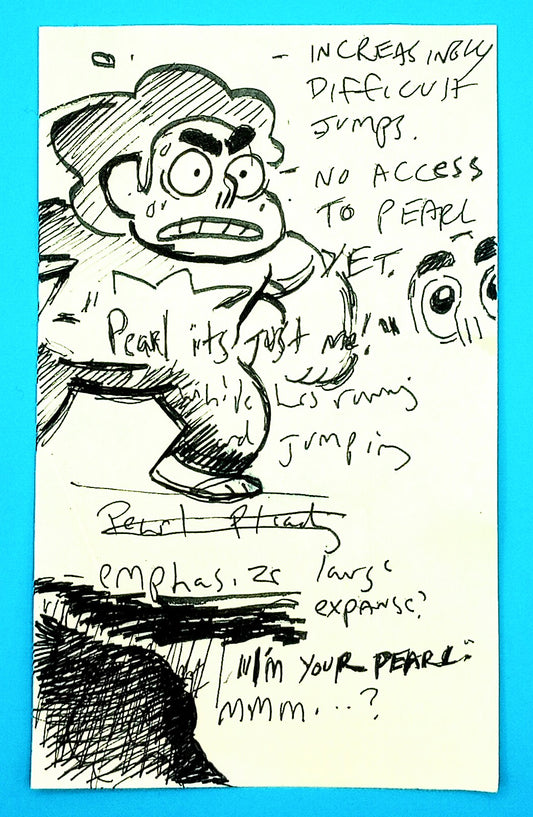 - INCREASINGLY
DIFFICULT
JUMPS.
- NO ACCESS
TO PEARL
YET.
"Pearl its just me!"
while hes running
and jumping
Pearl
emphasize large
expanse?
"I'M YOUR PEARL."
MMM...?